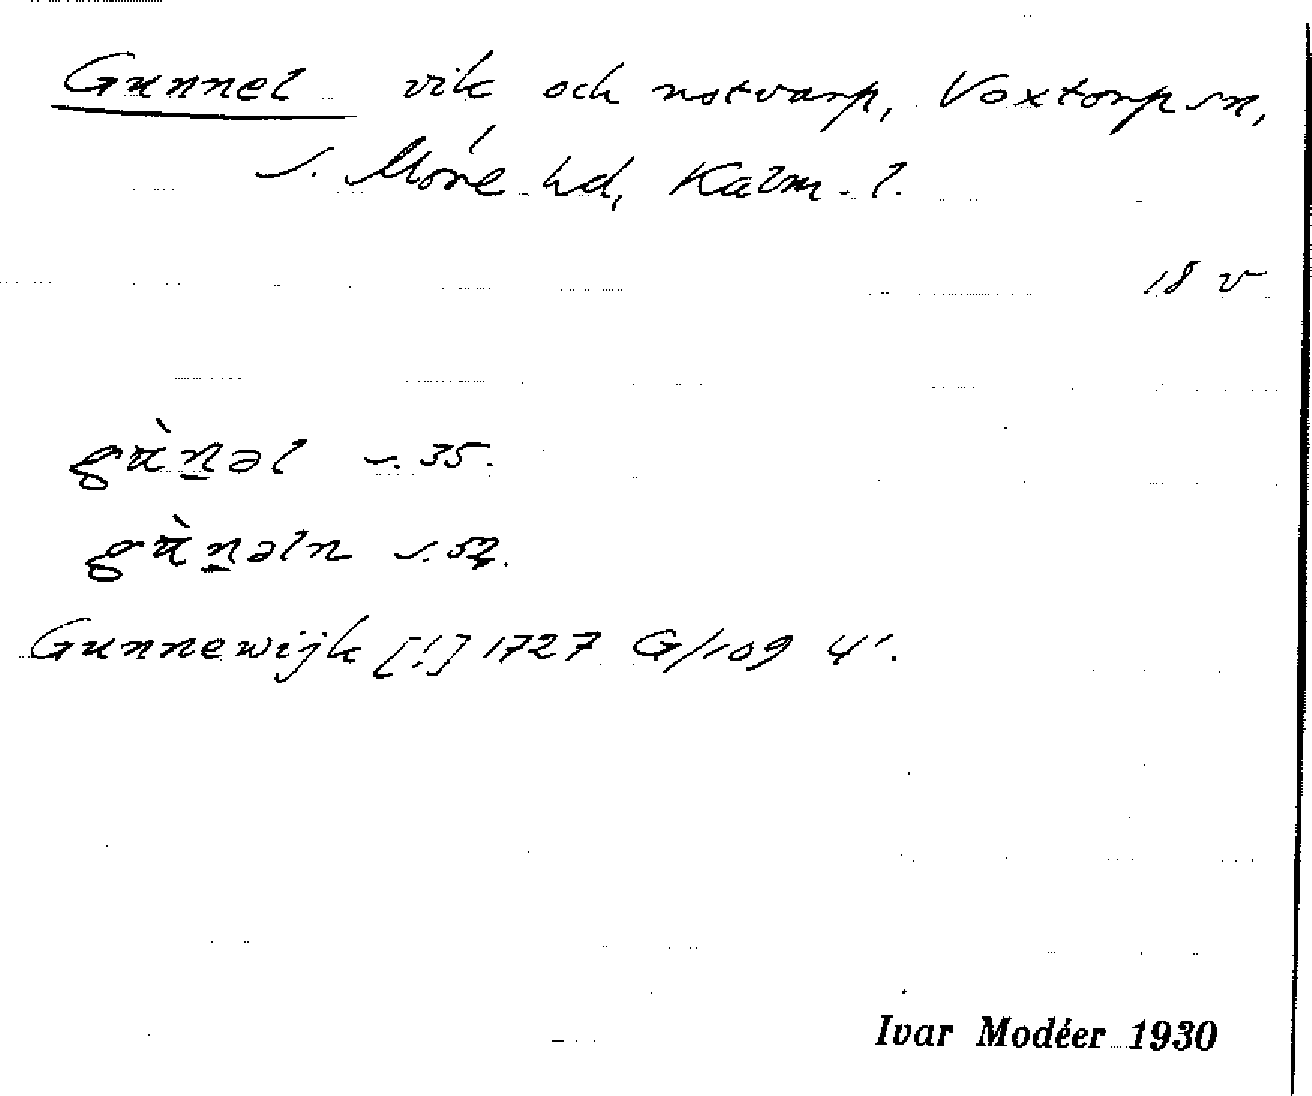 Gunnel vik och notvarp, Voxtorp sn,
S. Möre hd, Kalm. l.
18 v
gù̀n̲əl s. 35.
gù̀n̲əln s. 52.
Gunnewijk [!] 1727 G/109 4¹.
Ivar Modéer 1930